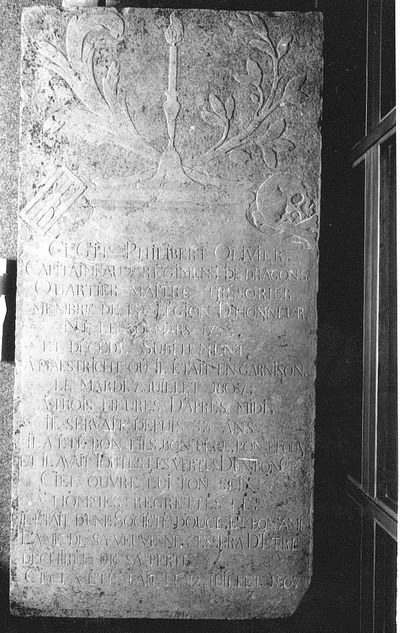 CI GIT PHILIBERT OLIVIER,
CAPITAINE AU REGIMENT DE DRAGONS,
QUARTIER MAITRE TRESORIER
MEMBRE DE LA LEGION D'HONNEUR
NE LE MARS
ET DECEDE SUBITEMENT
A MAESTRICHT OU IL ETAIT EN GARNISON,
LE MARDI 7 JUILLET 1807,
A TROIS HEURES D'APRES MIDI,
IL SERVAIT DEPUIS ANS
IL A ETE BON FILS, BON PERE, BON EPOUX
ET IL AVAIT TOUTES LES VERTUS D'UN BON
CIEL OUVRE LUI TON
HOMMES REGRETTES
IL ETAIT D'UNE SOCIETE DOUCE, ET BON AMI
LA VIE DE SA VEUVE NE CESSERA D'ETRE
DECHIREE DE SA PERTE
CECI A ETE FAIT LE 12 JUILLET 1807